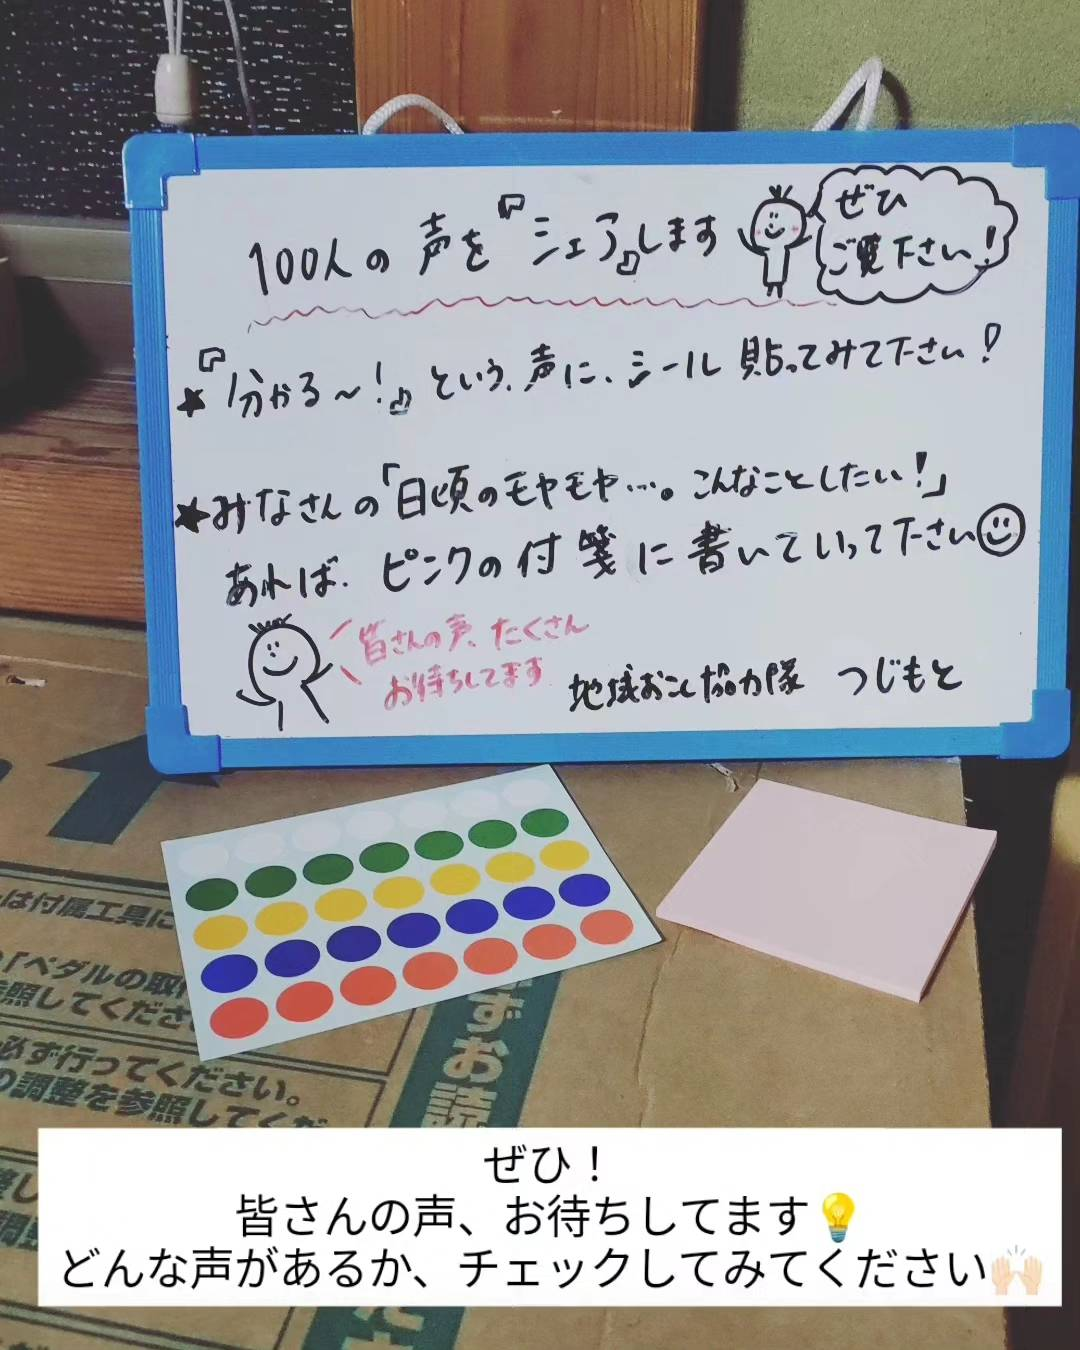 100人の声を『シェア』します
ぜひ
ご覧下さい!
★『分かる~!』という、声に、シール貼ってみて下さい!
★みなさんの「日頃のモヤモヤ…。こんなことしたい!」
あれば、ピンクの付箋に書いていって下さい
皆さんの声、たくさん
お待ちしてます
地域おこし協力隊 つじもと
は付属工具に
「ペダルの取
参照してくださ
必ず行ってください。
の調整を参照してくだ
ずお読
ぜひ!
皆さんの声、お待ちしてます💡
どんな声があるか、チェックしてみてください🙌🏻